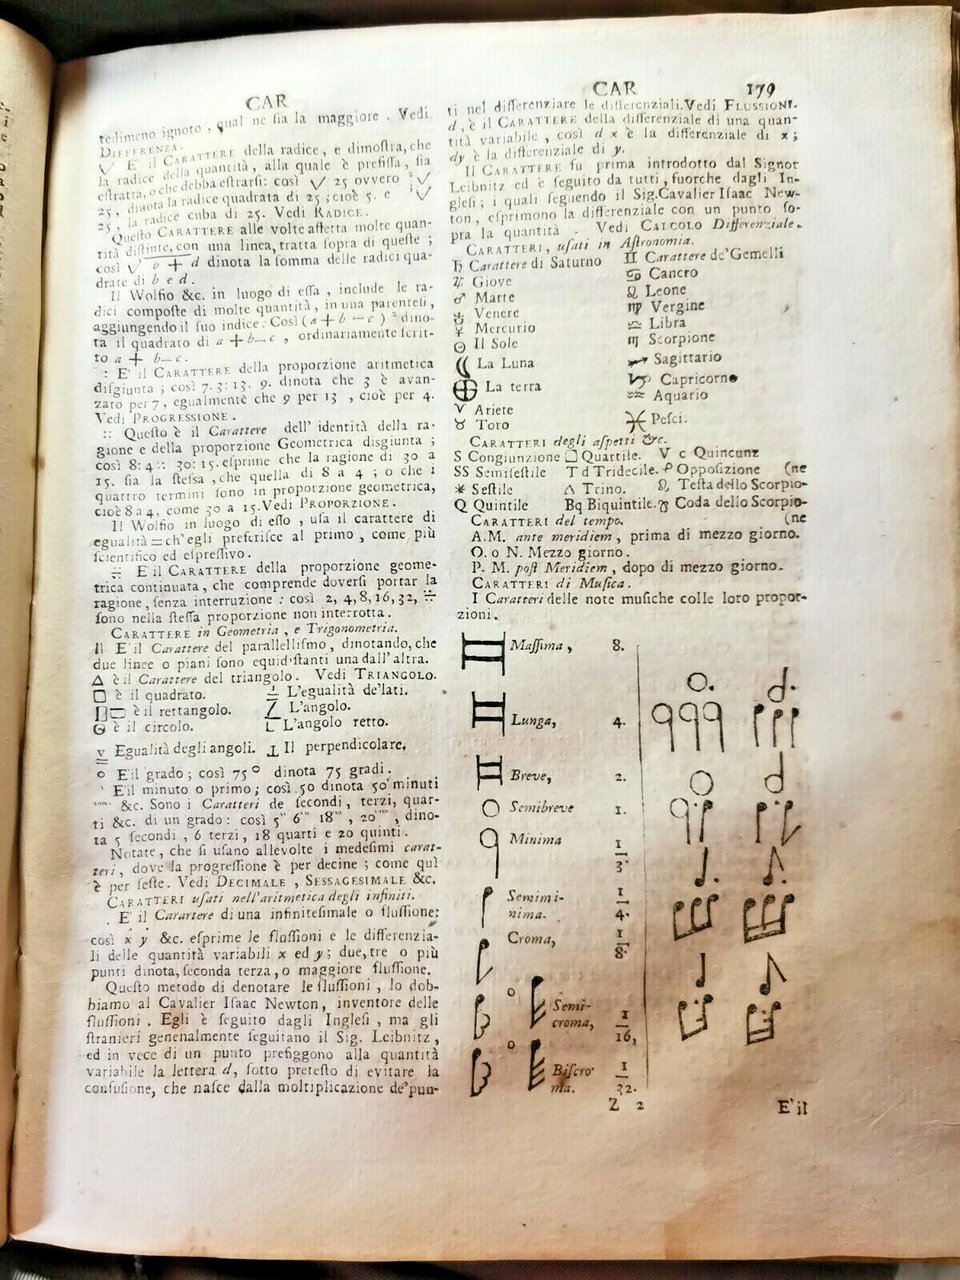 CAR
tedimeno ignoto, qual ne ſia la maggiore. Vedi
DIFFERENZA.
√ E' il CARATTERE della radice, e dimoſtra, che
la radice della quantità, alla quale è prefiſſa, ſia
eſtratta, o che debba eſtrarſi: così √ 25 ovvero ²√
25, dinota la radice quadrata di 25; cioè 5. e ³√
25, la radice cuba di 25. Vedi RADICE.
Queſto CARATTERE alle volte affetta molte quan-
tità diſtinte, con una linea, tratta ſopra di queſte;
così √ b + d dinota la ſomma delle radici qua-
drate di b e d.
Il Wolfio &c. in luogo di eſſa, include le ra-
dici compoſte di molte quantità, in una parenteſi,
aggiungendo il ſuo indice: Così (a + b — c) ² dino-
ta il quadrato di a + b — c, ordinariamente ſcrit-
to a + b — c.
: E' il CARATTERE della proporzione aritmetica
diſgiunta; così 7. 3: 13. 9. dinota che 3 è avan-
zato per 7, egualmente che 9 per 13, cioè per 4.
Vedi PROGRESSIONE.
:: Queſto è il Carattere dell'identità della ra-
gione e della proporzione Geometrica diſgiunta;
così 8: 4:: 30: 15. eſprime che la ragione di 30 a
15. ſia la ſteſſa, che quella di 8 a 4; o che i
quattro termini ſono in proporzione geometrica,
cioè 8 a 4, come 30 a 15. Vedi PROPORZIONE.
Il Wolfio in luogo di eſſo, uſa il carattere di
egualità = ch'egli preferiſce al primo, come più
ſcientifico ed eſpreſſivo.
÷ E il CARATTERE della proporzione geome-
trica continuata, che comprende doverſi portar la
ragione, ſenza interruzione: così 2, 4, 8, 16, 32, ÷
ſono nella ſteſſa proporzione non interrotta.
CARATTERE in Geometria, e Trigonometria.
|| E' il Carattere del parallelliſmo, dinotando, che
due linee o piani ſono equidiſtanti una dall'altra.
△ è il Carattere del triangolo. Vedi TRIANGOLO.
□ è il quadrato. L'egualità de'lati.
▭ è il rettangolo. ∠ L'angolo.
⊙ è il circolo. ∟ L'angolo retto.
Egualità degli angoli. ⊥ Il perpendicolare.
° E' il grado; così 75° dinota 75 gradi.
' E il minuto o primo; così 50 dinota 50' minuti
&c. Sono i Caratteri de ſecondi, terzi, quar-
ti &c. di un grado: così 5'' 6''' 18'''', 20''''', dino-
ta 5 ſecondi, 6 terzi, 18 quarti e 20 quinti.
Notate, che ſi uſano allevolte i medeſimi carat-
teri, dove la progreſſione è per decine; come quì
è per ſeſte. Vedi DECIMALE, SESSAGESIMALE &c.
CARATTERI uſati nell'aritmetica degli infiniti.
. E' il Carattere di una infiniteſimale o fluſſione:
così ẋ ẏ &c. eſprime le fluſſioni e le differenzia-
li delle quantità variabili x ed y; due, tre o più
punti dinota, ſeconda terza, o maggiore fluſſione.
Queſto metodo di denotare le fluſſioni, lo dob-
biamo al Cavalier Iſaac Newton, inventore delle
fluſſioni. Egli è ſeguito dagli Ingleſi, ma gli
ſtranieri genenalmente ſeguitano il Sig. Leibnitz,
ed in vece di un punto prefiggono alla quantità
variabile la lettera d, ſotto preteſto di evitare la
confuſione, che naſce dalla moltiplicazione de'pun-
CAR 179
ti nel differenziare le differenziali. Vedi FLUSSIONI.
d, è il CARATTERE della differenziale di una quan-
tità variabile, così d x è la differenziale di x;
dy è la differenziale di y.
Il CARATTERE fu prima introdotto dal Signor
Leibnitz ed è ſeguito da tutti, fuorche dagli In-
gleſi; i quali ſeguendo il Sig. Cavalier Iſaac New-
ton, eſprimono la differenziale con un punto ſo-
pra la quantità. Vedi CALCOLO Differenziale.
CARATTERI, uſati in Aſtronomia.
♄ Carattere di Saturno ♊ Carattere de'Gemelli
♃ Giove ♋ Cancro
♂ Marte ♌ Leone
Venere ♍ Vergine
☿ Mercurio ♎ Libra
⊙ Il Sole ♏ Scorpione
☾ La Luna ♐ Sagittario
⊕ La terra ♑ Capricorno
♈ Ariete ♒ Aquario
♉ Toro ♓ Peſci.
CARATTERI degli aſpetti &c.
S Congiunzione □ Quartile. V c Quincunz
SS Semiſeſtile T d Tridecile. ☍ Oppoſizione (ne
⚹ Seſtile △ Trino. ☊ Teſta dello Scorpio-
Q Quintile Bq Biquintile. ☋ Coda dello Scorpio-
CARATTERI del tempo. (ne
A.M. ante meridiem, prima di mezzo giorno.
O. o N. Mezzo giorno.
P. M. poſt Meridiem, dopo di mezzo giorno.
CARATTERI di Muſica.
I Caratteri delle note muſiche colle loro propor-
zioni.
Maſſima, 8.
Lunga, 4.
Breve, 2.
Semibreve 1.
Minima 1/3.
Semimi-
nima. 1/4.
Croma, 1/8.
o Semi-
croma, 1/16,
o Biſcro-
ma. 1/32.
Z 2 E' il